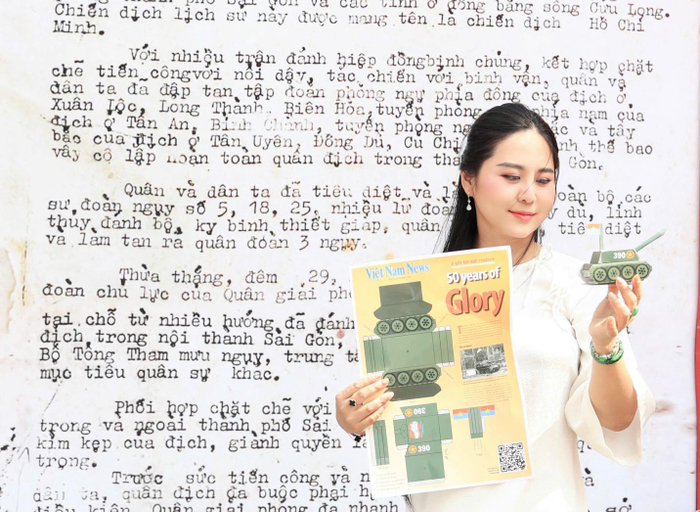 thành phố Sài Gòn và các tỉnh ở đồng bằng sông Cửu Long.
Chiến dịch lịch sử này được mang tên là chiến dịch Hồ Chí
Minh.
Với nhiều trận đánh hiệp đồng binh chủng, kết hợp chặt
chẽ tiến công với nổi dậy, tác chiến với binh vận, quân và
dân ta đã đập tan tập đoàn phòng ngự phía đông của địch ở
Xuân Lộc, Long Thành, Biên Hòa, tuyến phòng phía nam của
địch ở Tân An, Bình Chánh, tuyến phòng và tây
bắc của địch ở Tân Uyên, Đồng Dù, Củ Chi thế bao
vây cô lập hoàn toàn quân địch trong Gòn.
Quân và dân ta đã tiêu diệt và bộ các
sư đoàn ngụy số 5, 18, 25, nhiều lữ dù, lính
thủy đánh bộ, kỵ binh thiết giáp, quân tiêu diệt
và làm tan rã quân đoàn 3 ngụy.
Thừa thắng, đêm 29,
đoàn chủ lực của Quân giải
tại chỗ từ nhiều hướng đã đánh
địch trong nội thành Sài Gòn,
Bộ Tổng Tham mưu ngụy, trung
mục tiêu quân sự khác.
Phối hợp chặt chẽ với
trong và ngoài thành phố Sài
kìm kẹp của địch, giành quyền
trọng.
Trước sức tiến công và
dân ta, quân địch đã buộc phải
điều kiện. Quân giải phóng đã nhanh
Việt Nam News
50 years of
Glory
390
390
390